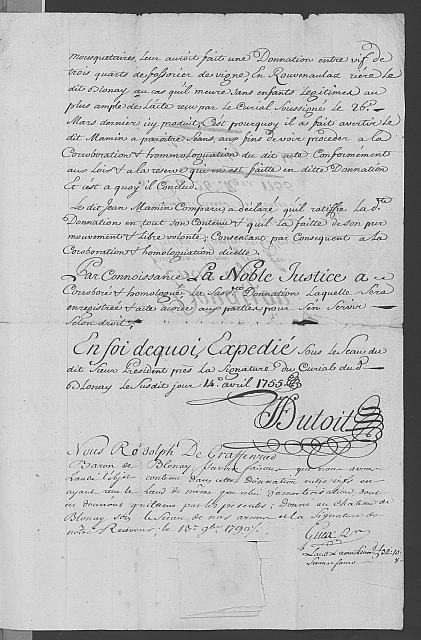 mousquetaires, leur auroit fait une Donnation entre vifs de
trois quarts de fossorier de vigne, En Rouvenaulad riére le
dit Blonay au cas qu'il meure sans enfants legitimes au
plus ample de l'acte reçu par le Curial Soussigné le 26.e
Mars dernier icy produit, C'est pourquoy il a fait avertir le
dit Mamin a paroitre ceans, aux fins de voir proceder a la
Corroboration & hommologation du dit acte Conformément
aux Loix & a la reserve qui en est faitte en ditte Donnation
Et c'est a quoy il Conclud.
Le dit Jean Mamin Comparu, a déclaré qu'il ratiffie La d.te
Donnation en tout son Contenu & qu'il la faitte de son pur
mouvement & libre volonté; Consentant par Consequent a la
Coroboration & homologuation d'icelle.
Par Connoissance La Noble Justice a
Coroboré & homologué La Sus.te Donnation Laquelle Sera
enregistrée & acte accordé aux parties pour S'en Servir
Selon droit.
En foi de quoi, Expedié Sous le Seau du
dit Sieur President près La Signature du Curial du d.t
Blonay Le Susdit jour 14.e avril 1755.
Dutoit
Nous Rodolph De Graffenried
Baron de Blonay, Savoir faisons que nous avons
Laudé l'objet contenu dans cette Donnation entre vifs en
ayant reçu le Laud de même que celui
en donnons quittance par les presentes; Donné au Chateau de
Blonay sous le Sceau de nos armes et la Signature de
nôtre Receveur le 13.e 9bre 1790.